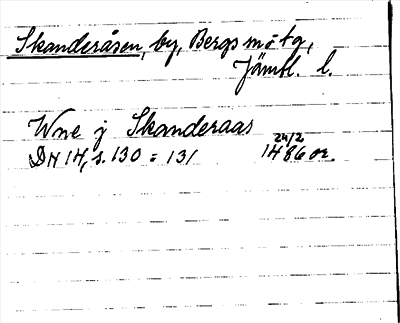 Skanderåsen, by, Bergs mötg,
Jämtl. l.
Wne j Skanderaas
24/2
DN 14, s. 130 = 131 1486 or.